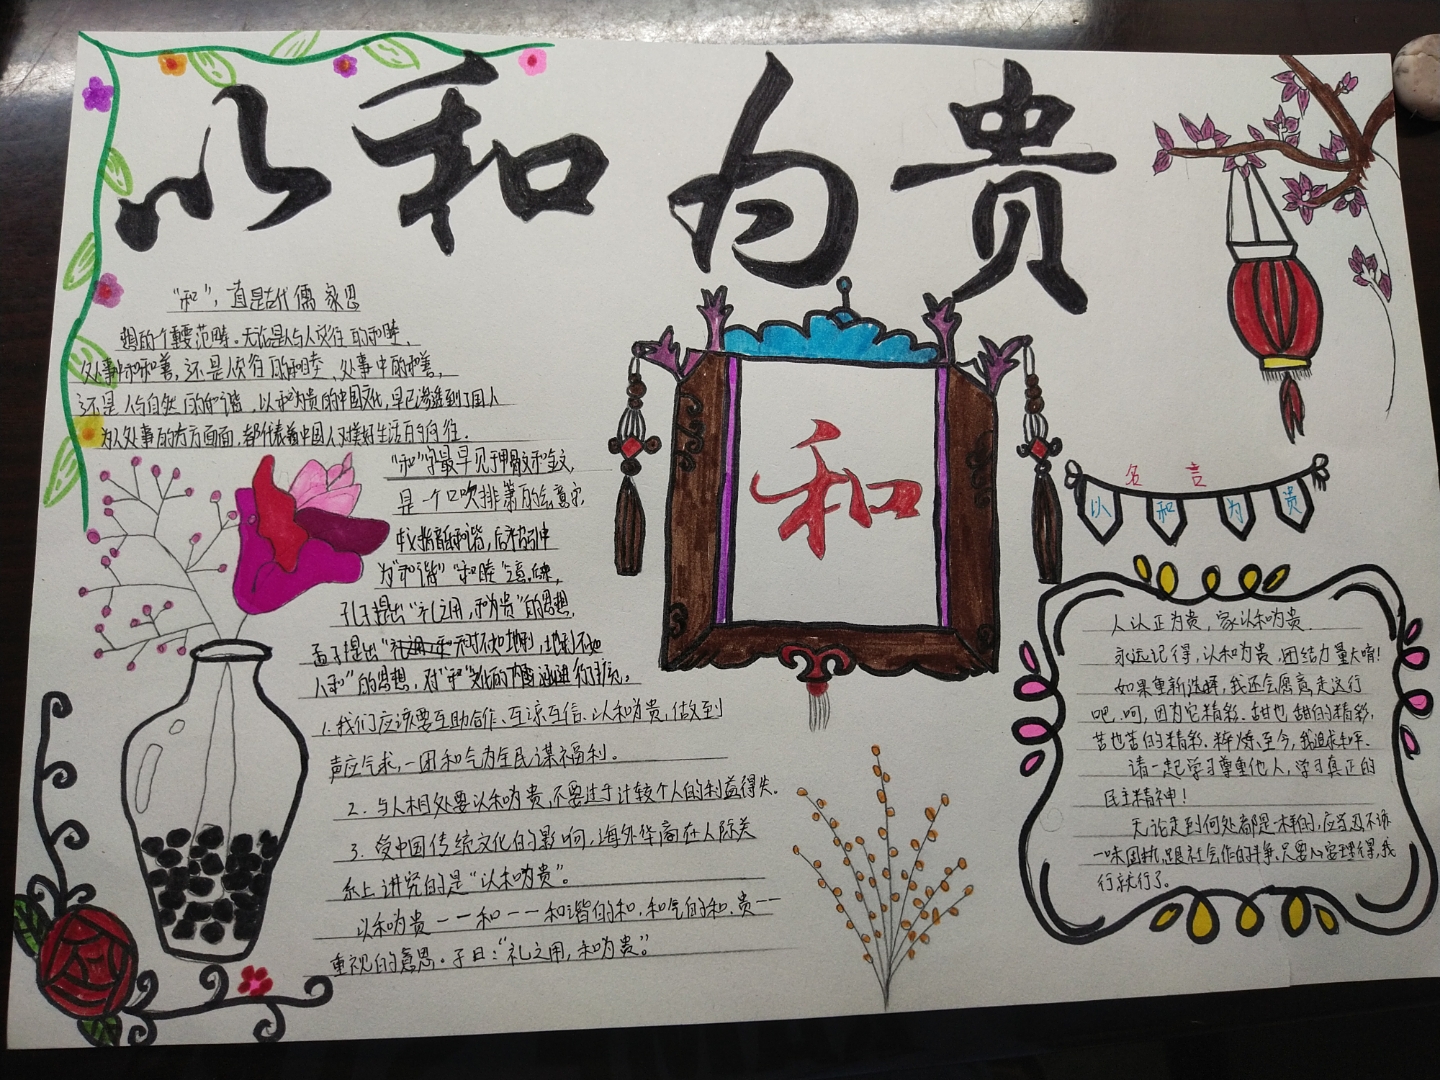 以和为贵
"和",直是古代儒家思
想的个重要范畴。无论是人与人交往的和睦、
处事中和和善,还是人与自然的和谐,以和为贵的中国文化,早已渗透到了国人
为人处事的方方面面,都代表着中国人对美好生活的向往.
"和"字最早见于甲骨文和金文,
是一个口吹排箫的会意字
为"和谐""和睦"之意.
孔子提出"礼之用,和为贵"的思想.
孟子提出"天时不如地利,地利不如
人和"的思想,对"和"文化的内涵进行了
1.我们应该要互助合作、互谅互信、以和为贵,做到
声应气求,一团和气为全民谋福利。
2.与人相处要以和为贵,不要过于计较个人的利益得失.
3.受中国传统文化的影响,海外华裔在人际关
系上讲究的是"以和为贵"。
以和为贵——和——和谐的和,和气的和.贵——
重视的意思.子曰:"礼之用,和为贵。"
和
名言
以和为贵
人以正为贵,家以和为贵.
永远记得,以和为贵,团结力量大唷!
如果重新选择,我还会愿意走这行
吧.呵,因为它精彩.甜也甜的精彩,
苦也苦的精彩.至今,我追求和平.
请一起学习尊重他人,学习真正的
民主精神!
无论走到何处都是一样的,应当
一味固执,跟社会作的斗争.只要心安理得,我
行就行了。